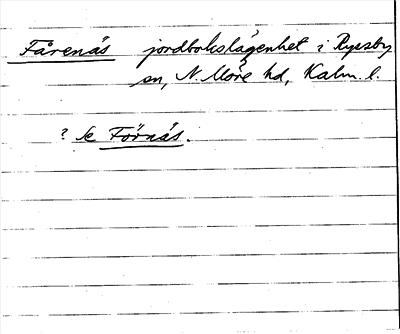 Fårenäs jordbokslägenhet i Ryssby
sn, N. Möre hd, Kalm. l.
? Se Förnäs.